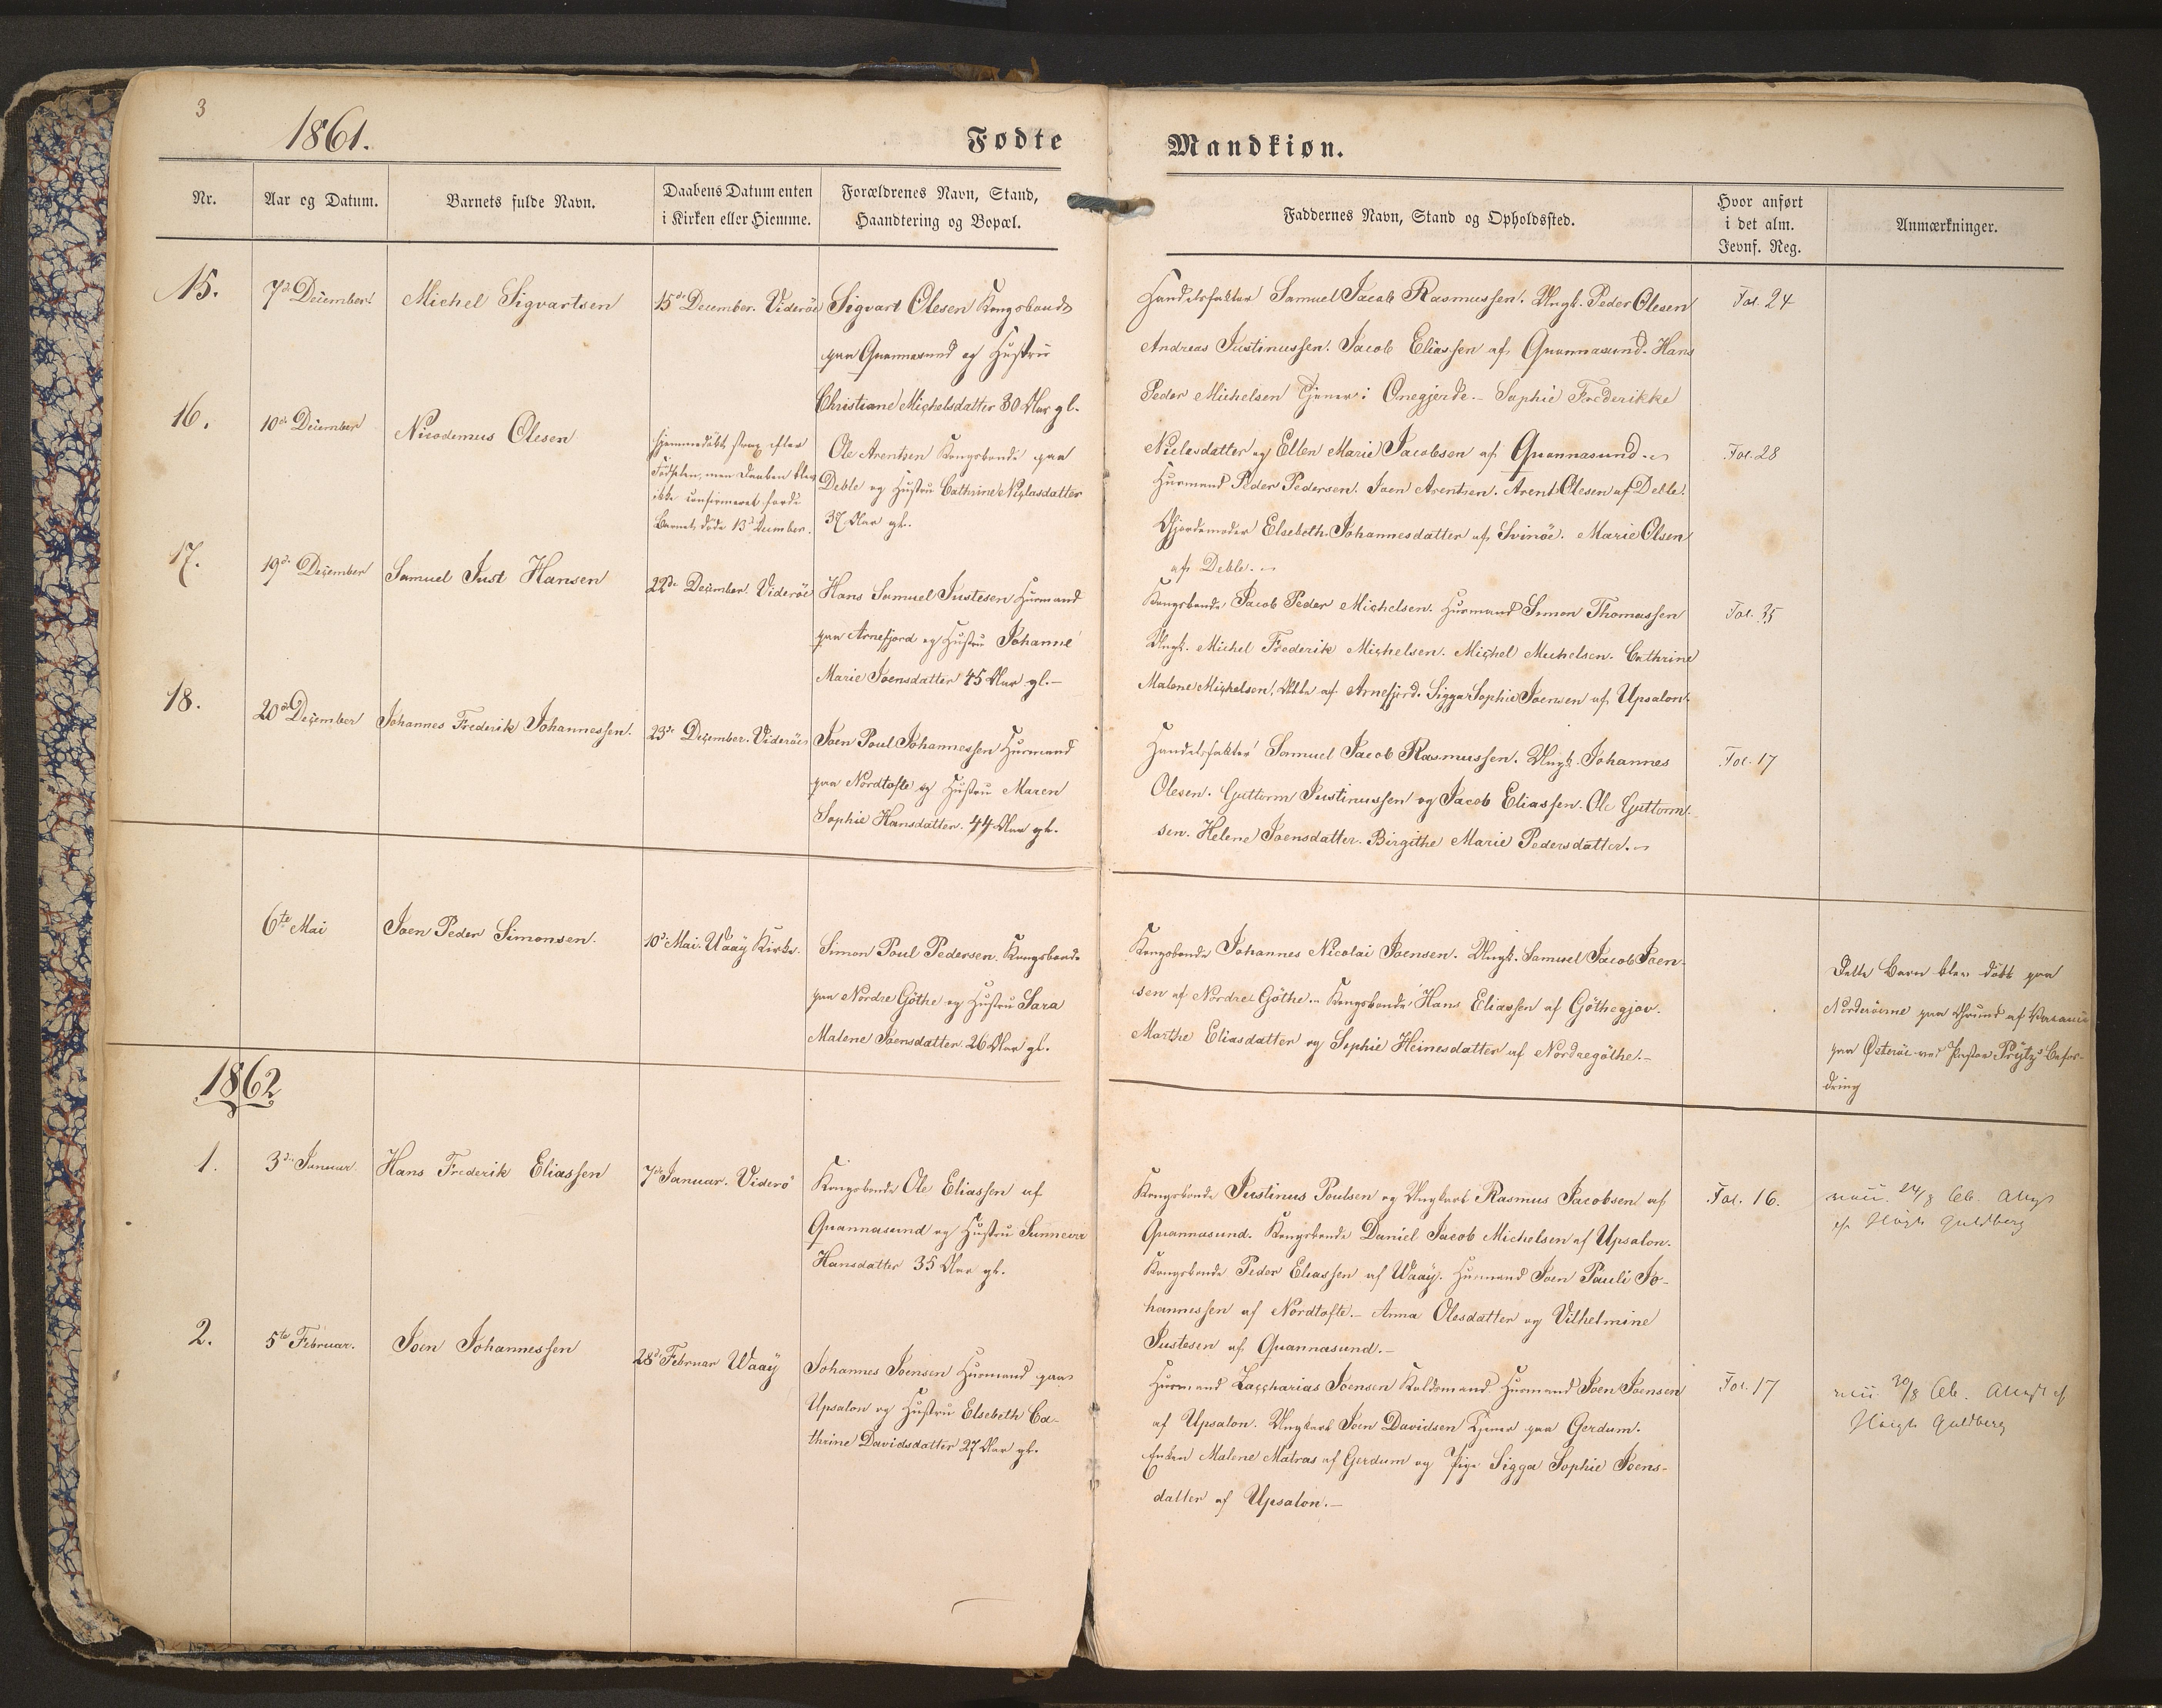 3
1861.
Fødte
Mandkiøn.
Nr.
Aar og Datum.
Barnets fulde Navn.
Daabens Datum enten
i Kirken eller Hiemme.
Forældrenes Navn, Stand,
Haandtering og Bopæl.
Faddernes Navn, Stand og Opholdssted.
Hvor anført
i det alm.
Jevnf. Reg.
Anmærkninger.
15.
7de December
Michel Sigvartsen
15de December. Viderøe
Sigvart Olesen Kongsbonde
paa Quannasund og Hustru
Christiane Michelsdatter 30 Aar gl.
Handelsfaktor Samuel Jacob Rasmussen. Ungk. Peder Olesen
Andreas Justinussen. Jacob Eliassen af Quannasund. Hans
Peder Michelsen Tjener i Onegjerde. Sophie Frederikke
Nielasdatter og Ellen Marie Jacobsen af Quannasund.
Fol. 24
16.
10de December
Nicodemus Olesen
hjemmedöbt strax efter
Födslen, men Daaben blev
ikke confirmeret fordi
Barnet döde 13de December.
Ole Arentsen Kongsbonde paa
Deble og Hustru Cathrine Niclasdatter
37 Aar gl.
Huusmand Peder Pedersen. Joen Arentsen. Arent Olesen af Deble.
Gjordemoder Elsebeth Johannesdatter af Svinöe. Marie Olsen
af Deble.
Fol. 28
17.
19de December
Samuel Just Hansen
22de December. Viderøe
Hans Samuel Justesen Huusmand
paa Arnefjord og Hustru Johanne
Marie Joensdatter 45 Aar gl.
Kongsbonde Jacob Peder Michelsen. Huusmand Simon Thomassen
Ungk. Michel Frederik Michelsen. Michel Michelsen. Cathrine
Malene Michelsen. Alle af Arnefjord. Sigga Sophie Joensen af Upsalon.
Fol. 35
18.
20de December
Johannes Frederik Johannessen.
23de December. Viderøe
Joen Poul Johannessen Huusmand
paa Nordtofte og Hustru Maren
Sophie Hansdatter. 44 Aar gl.
Handelsfaktor Samuel Jacob Rasmussen. Ungk. Johannes
Olesen. Guttorm Justinussen og Jacob Eliassen. Ole Guttorm-
sen. Helene Joensdatter. Birgithe Marie Pedersdatter.
Fol. 17
6te Mai
Joen Peder Simonsen.
10de Mai. Waaÿ Kirke.
Simon Poul Pedersen. Kongsbonde
paa Nordre Göthe og Hustru Sara
Malene Joensdatter. 26 Aar gl.
Kongsbonde Johannes Nicolai Joensen. Ungk. Samuel Jacob Joen-
sen af Nordre Göthe. Kongsbonde Hans Eliassen af Göthegjov.
Marthe Eliasdatter og Sophie Heinesdatter af Nordregöthe.
Dette Barn blev döbt paa
Norderöerne paa Grund af Vacance
paa Østeröe ved Pastor Prÿtz's Befor-
dring
1862
1.
3die Januar
Hans Frederik Eliassen
7de Januar. Viderö
Kongsbonde Ole Eliassen af
Quannasund og Hustru Sunneva
Hansdatter 35 Aar gl.
Kongsbonde Justinus Poulsen og Ungkarl Rasmus Jacobsen af
Quannasund. Kongsbonde Daniel Jacob Michelsen af Upsalon.
Kongsbonde Peder Eliassen af Waaÿ. Huusmand Joen Pauli Jo-
hannessen af Nordtofte. Anna Olesdatter og Vilhelmine
Justesen af Quannasund.
Fol. 16.
24/8
Höegh Guldberg
2.
5te Februar.
Joen Johannessen
28de Februar Waaÿ
Johannes Joensen Huusmand paa
Upsalon og Hustru Elsebeth Ca-
thrine Davidsdatter 27 Aar gl.
Huusmand Zaccharias Joensen Kaldsmand. Huusmand Joen Joensen
af Upsalon. Ungkarl Joen Davidsen Tjener paa Gerdum.
Enken Malene Matras af Gerdum og Pige Sigga Sophie Joens-
datter af Upsalon.
Fol. 17
30/8
Höegh Guldberg